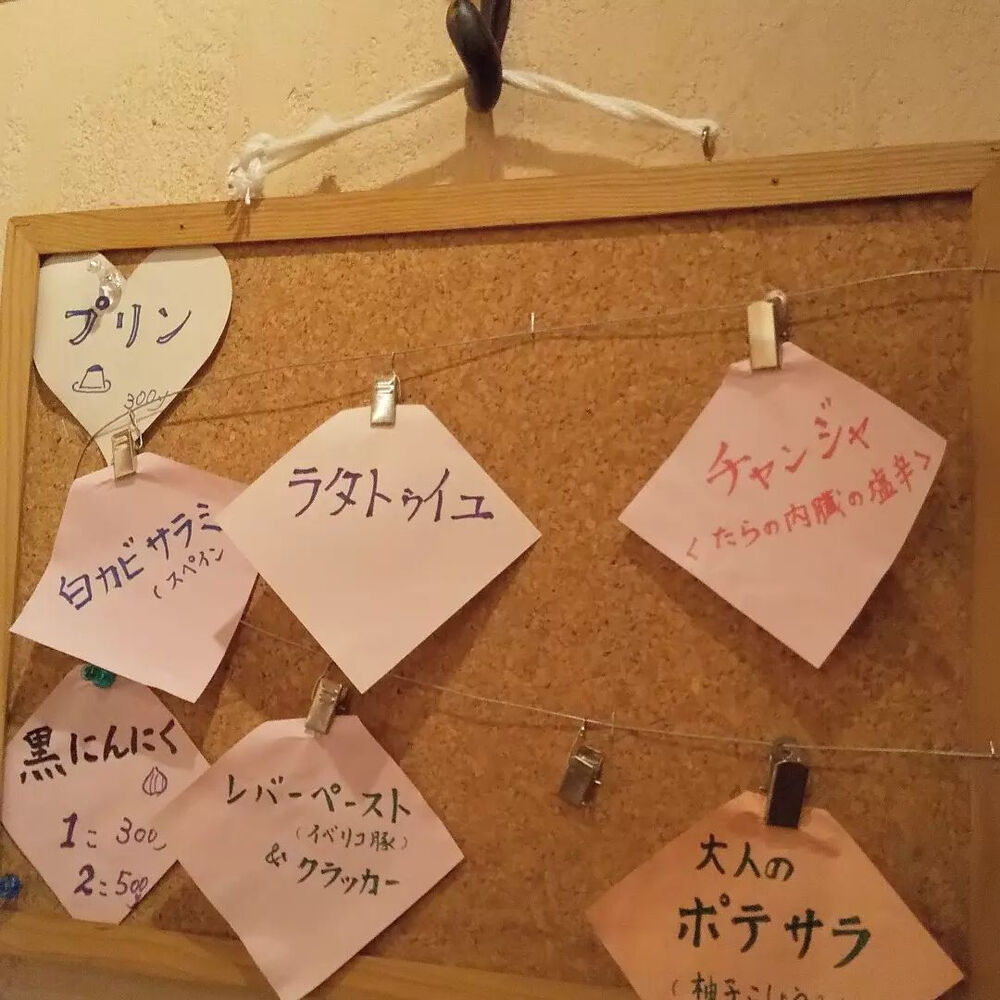 プリン
300
白カビサラミ
(スペイン
ラタトゥイユ
チャンジャ
<たらの内臓の塩辛>
黒にんにく
1コ 300
2コ 500
レバーペースト
(イベリコ豚)
& クラッカー
大人の
ポテサラ
(柚子こしょう